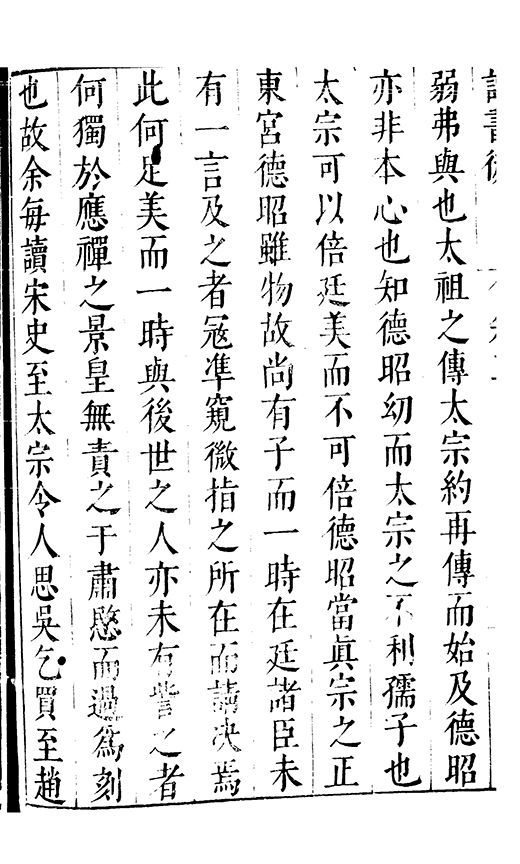 讀書後
弱弗與也太祖之傳太宗約再傳而始及德昭
亦非本心也知德昭幼而太宗之不利孺子也
太宗可以倍廷美而不可倍德昭當眞宗之正
東宮德昭雖物故尚有子而一時在廷諸臣未
有一言及之者冦準窺微指之所在而請決焉
此何足美而一時與後世之人亦未有訾之者
何獨於應禪之景皇無責之于肅愍而過爲刻
也故余每讀宋史至太宗令人思吳乞買至趙